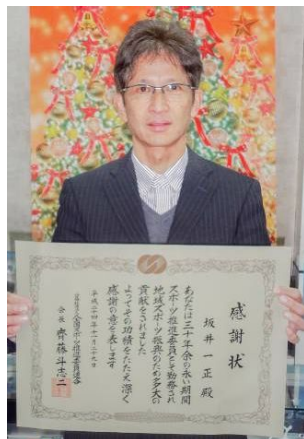 感謝状
坂井一正殿
あなたは三十年余の永い期間
スポーツ推進委員として勤務され
地域スポーツ振興のため多大の
貢献をされました
よってその功績をたたえ深く
感謝の意を表します
平成二十四年十一月二十九日
全国スポーツ推進委員連合
会長 齊藤斗志二